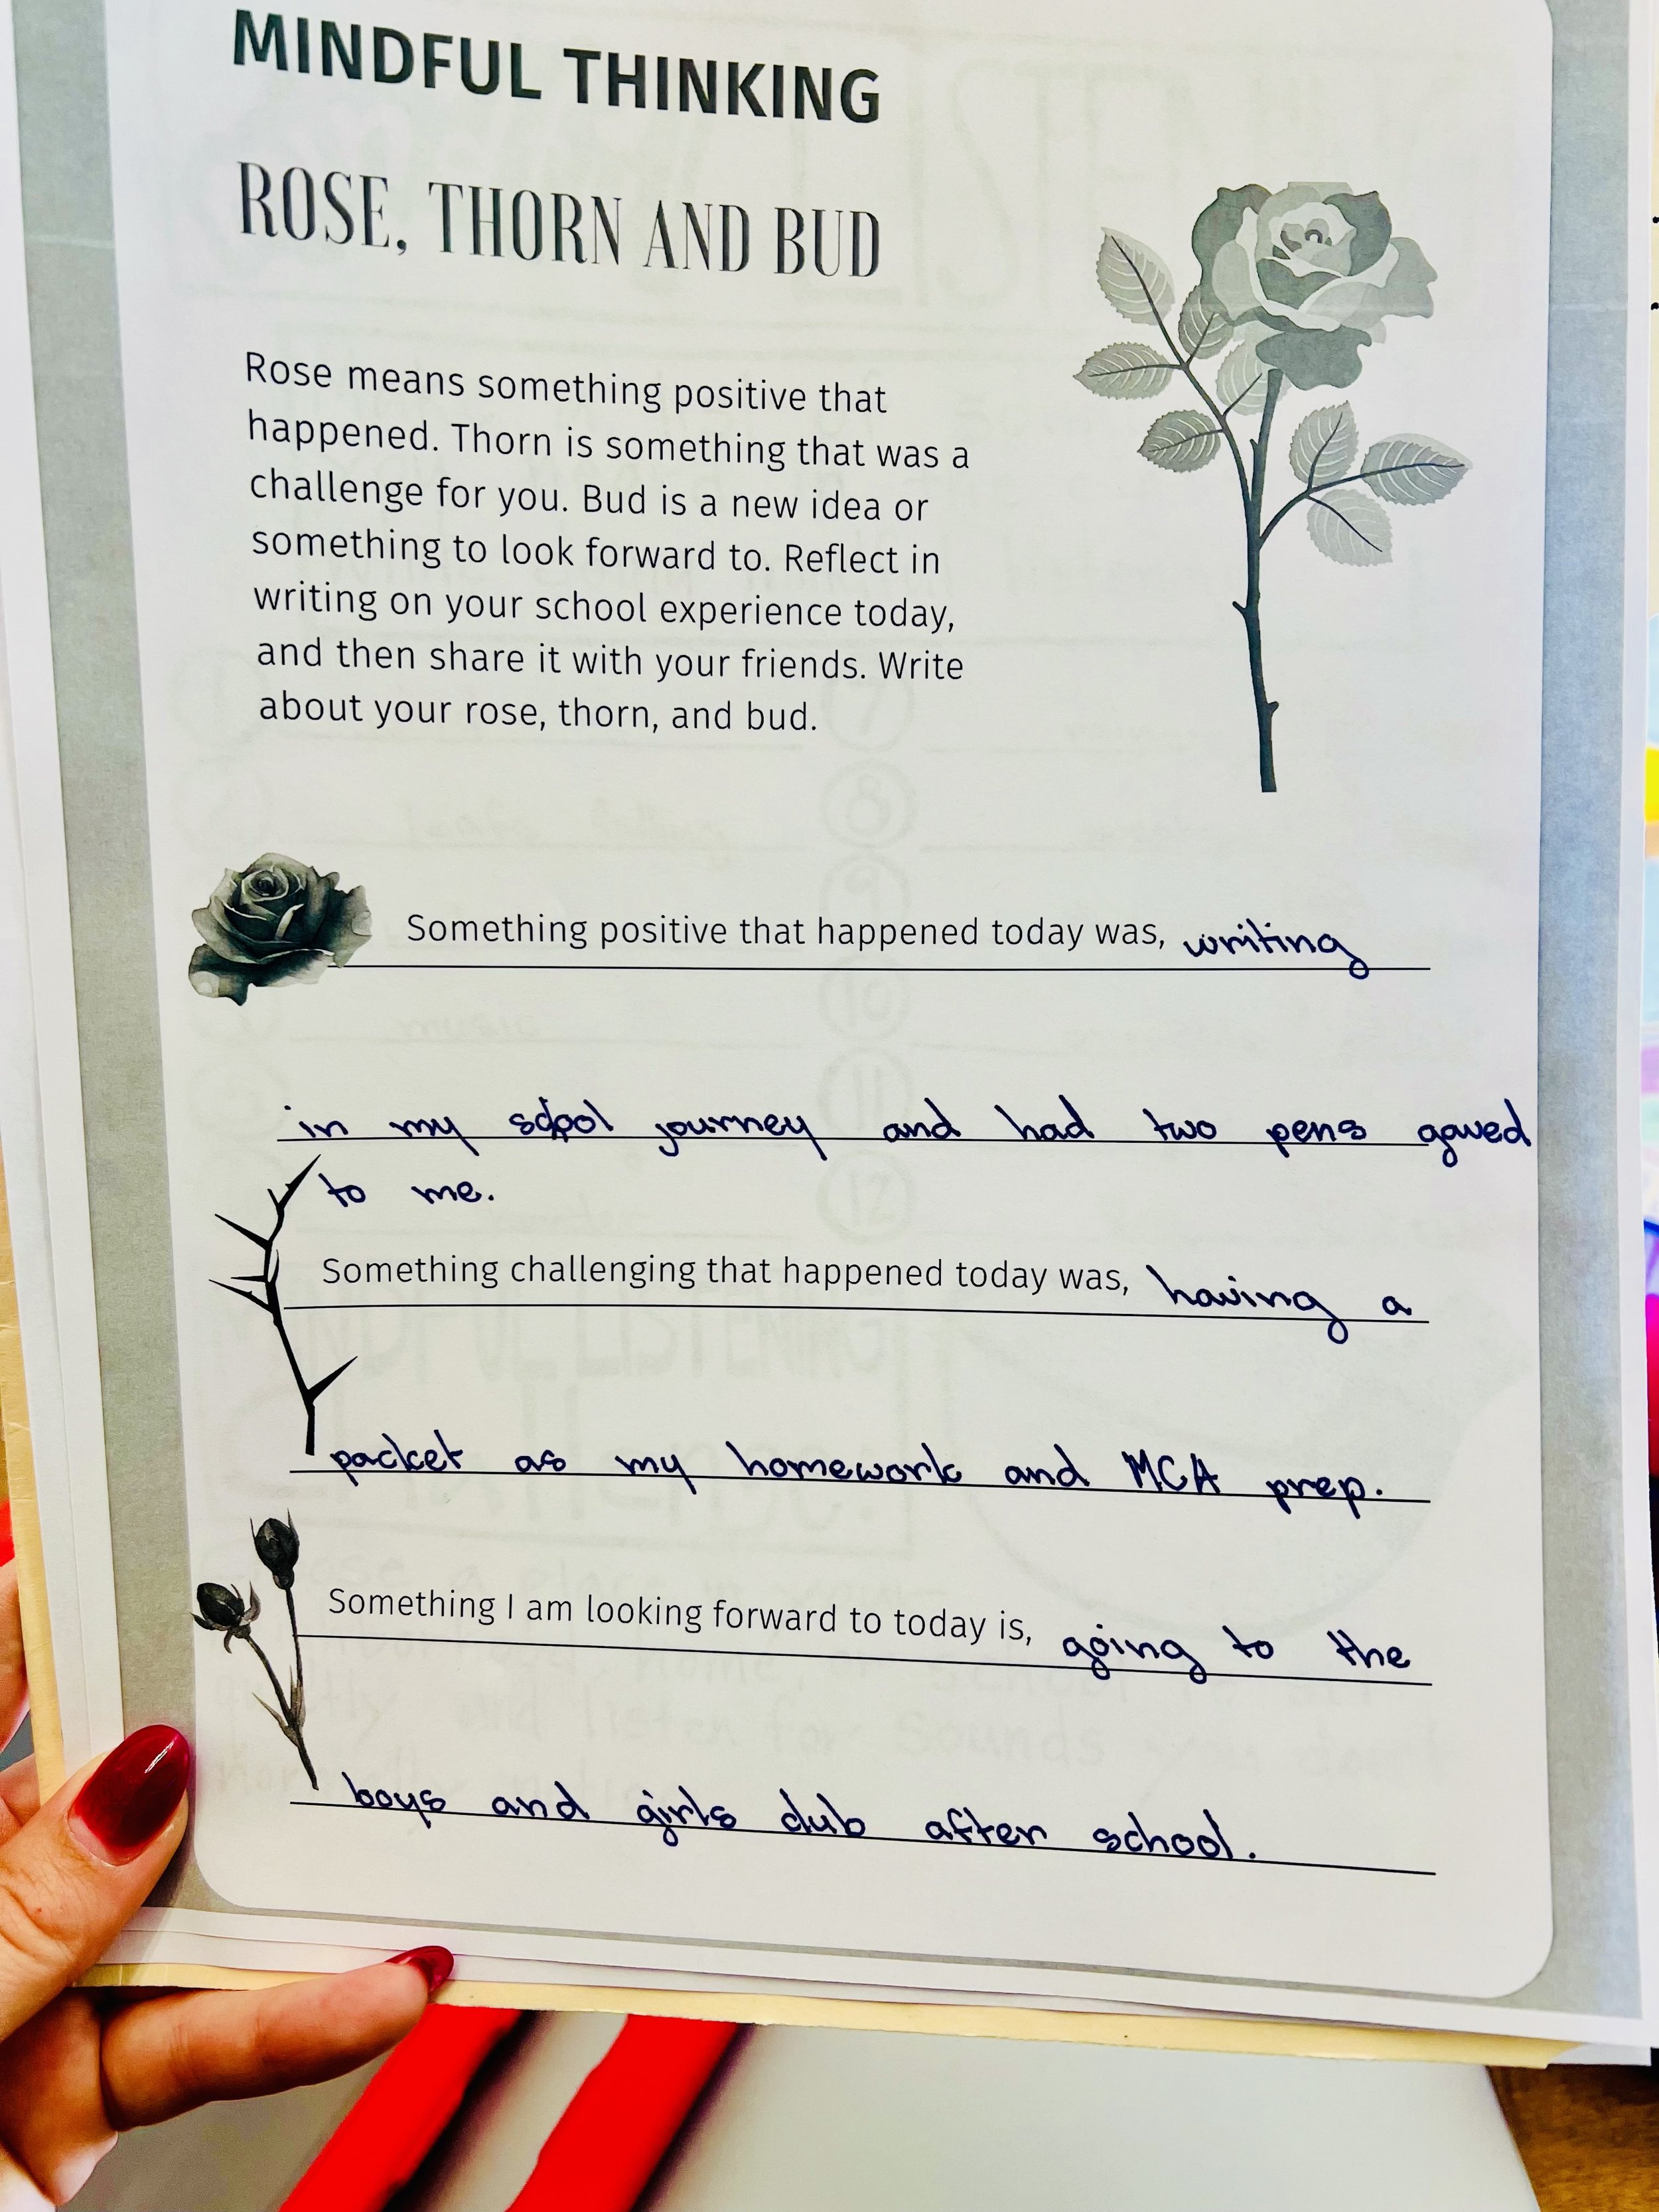 MINDFUL THINKING
ROSE, THORN AND BUD
Rose means something positive that
happened. Thorn is something that was a
challenge for you. Bud is a new idea or
something to look forward to. Reflect in
writing on your school experience today,
and then share it with your friends. Write
about your rose, thorn, and bud.
Something positive that happened today was, writing
in my school journey and had two pens gaved
to me.
Something challenging that happened today was, having a
packet as my homework and MCA prep.
Something I am looking forward to today is, going to the
boys and girls club after school.